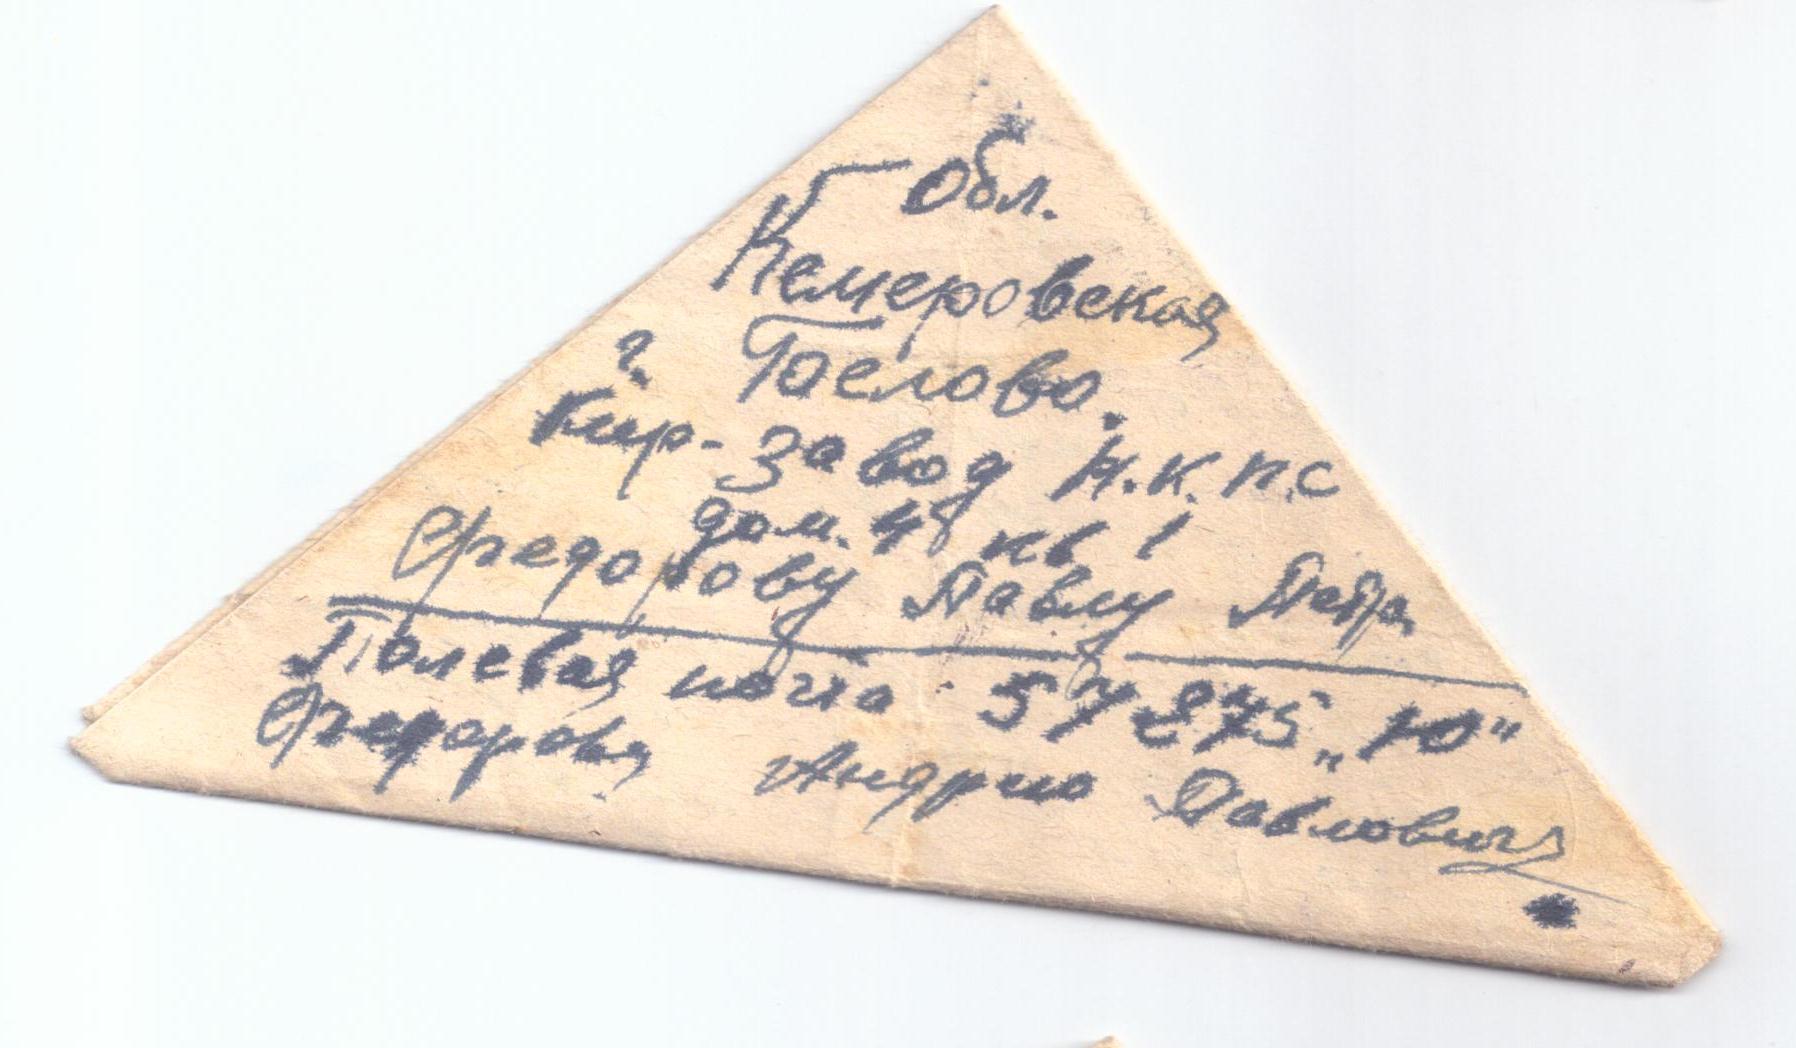 Обл.
Кемеровская
г. Гослово.
Кир-завод Н.К.П.С
дом. 48 кв 1
Федорову Павлу Петро
Полевая почта 57275 "Ю"
Федорова Андрио Павлович